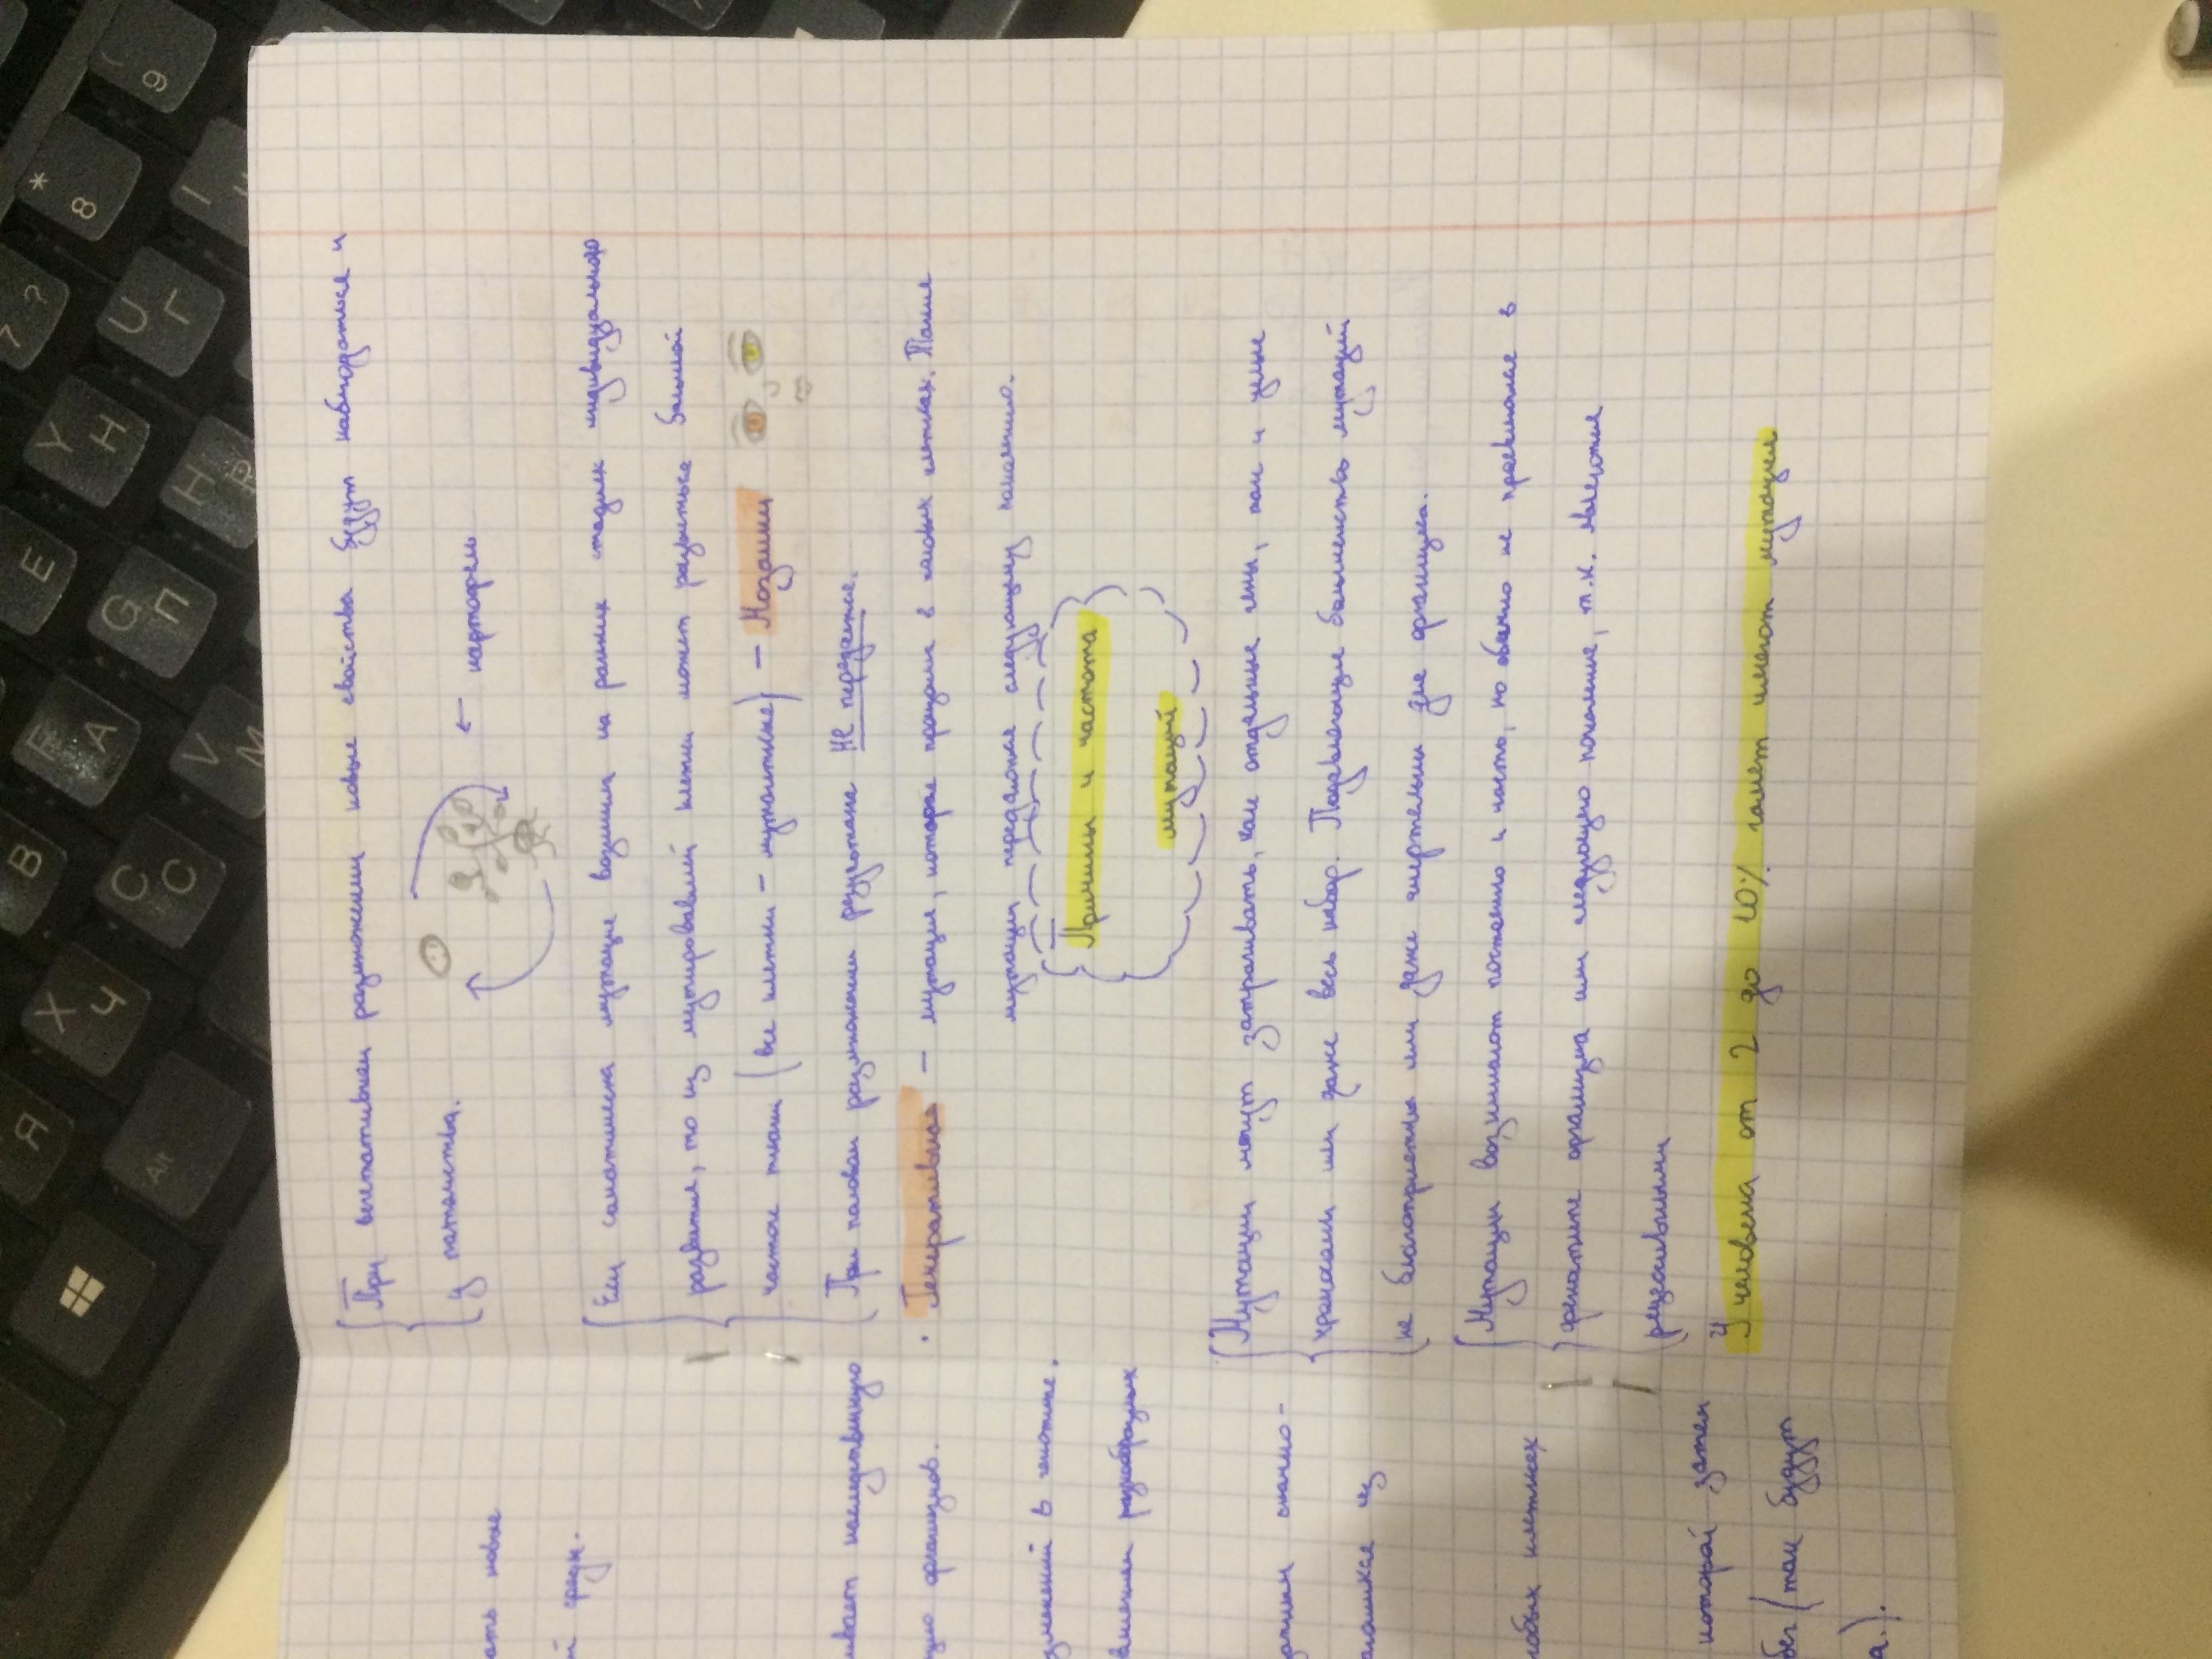 При вегетативном размножении новые свойства будут наблюдаться и
у потомства.
← картофель
Если соматическая мутация возникла на ранних стадиях индивидуального
развития, то из мутировавшей клетки может развиться большой
участок ткани (все клетки - мутантные) - Мозаики
При половом размножении результате не передаётся.
· Генеративная - мутации, которые произошли в половых клетках. Такие
мутации передаются следующему поколению.
Причины и частота
мутаций
Мутации могут затрагивать, как отдельные гены, так и целые
хромосомы или даже весь набор. Подавляющее большинство мутаций
не благоприятны или даже смертельны для организма.
Мутации возникают постоянно и часто, но обычно не проявляются в
фенотипе организма или следующего поколения, т.к. являются
рецессивными
У человека от 2 до 10% гамет имеют мутации.
ать новые
й среды.
ивает наследственную
организмов.
зменений в генотипе.
разнообразных
скачко-
из
любых клетках
которой затем
бег (там будут
а).
* 8
7 ?
9
I
U Г
Y Н
H Р
E
G П
F А
V М
B И
C С
X Ч
Я
Alt